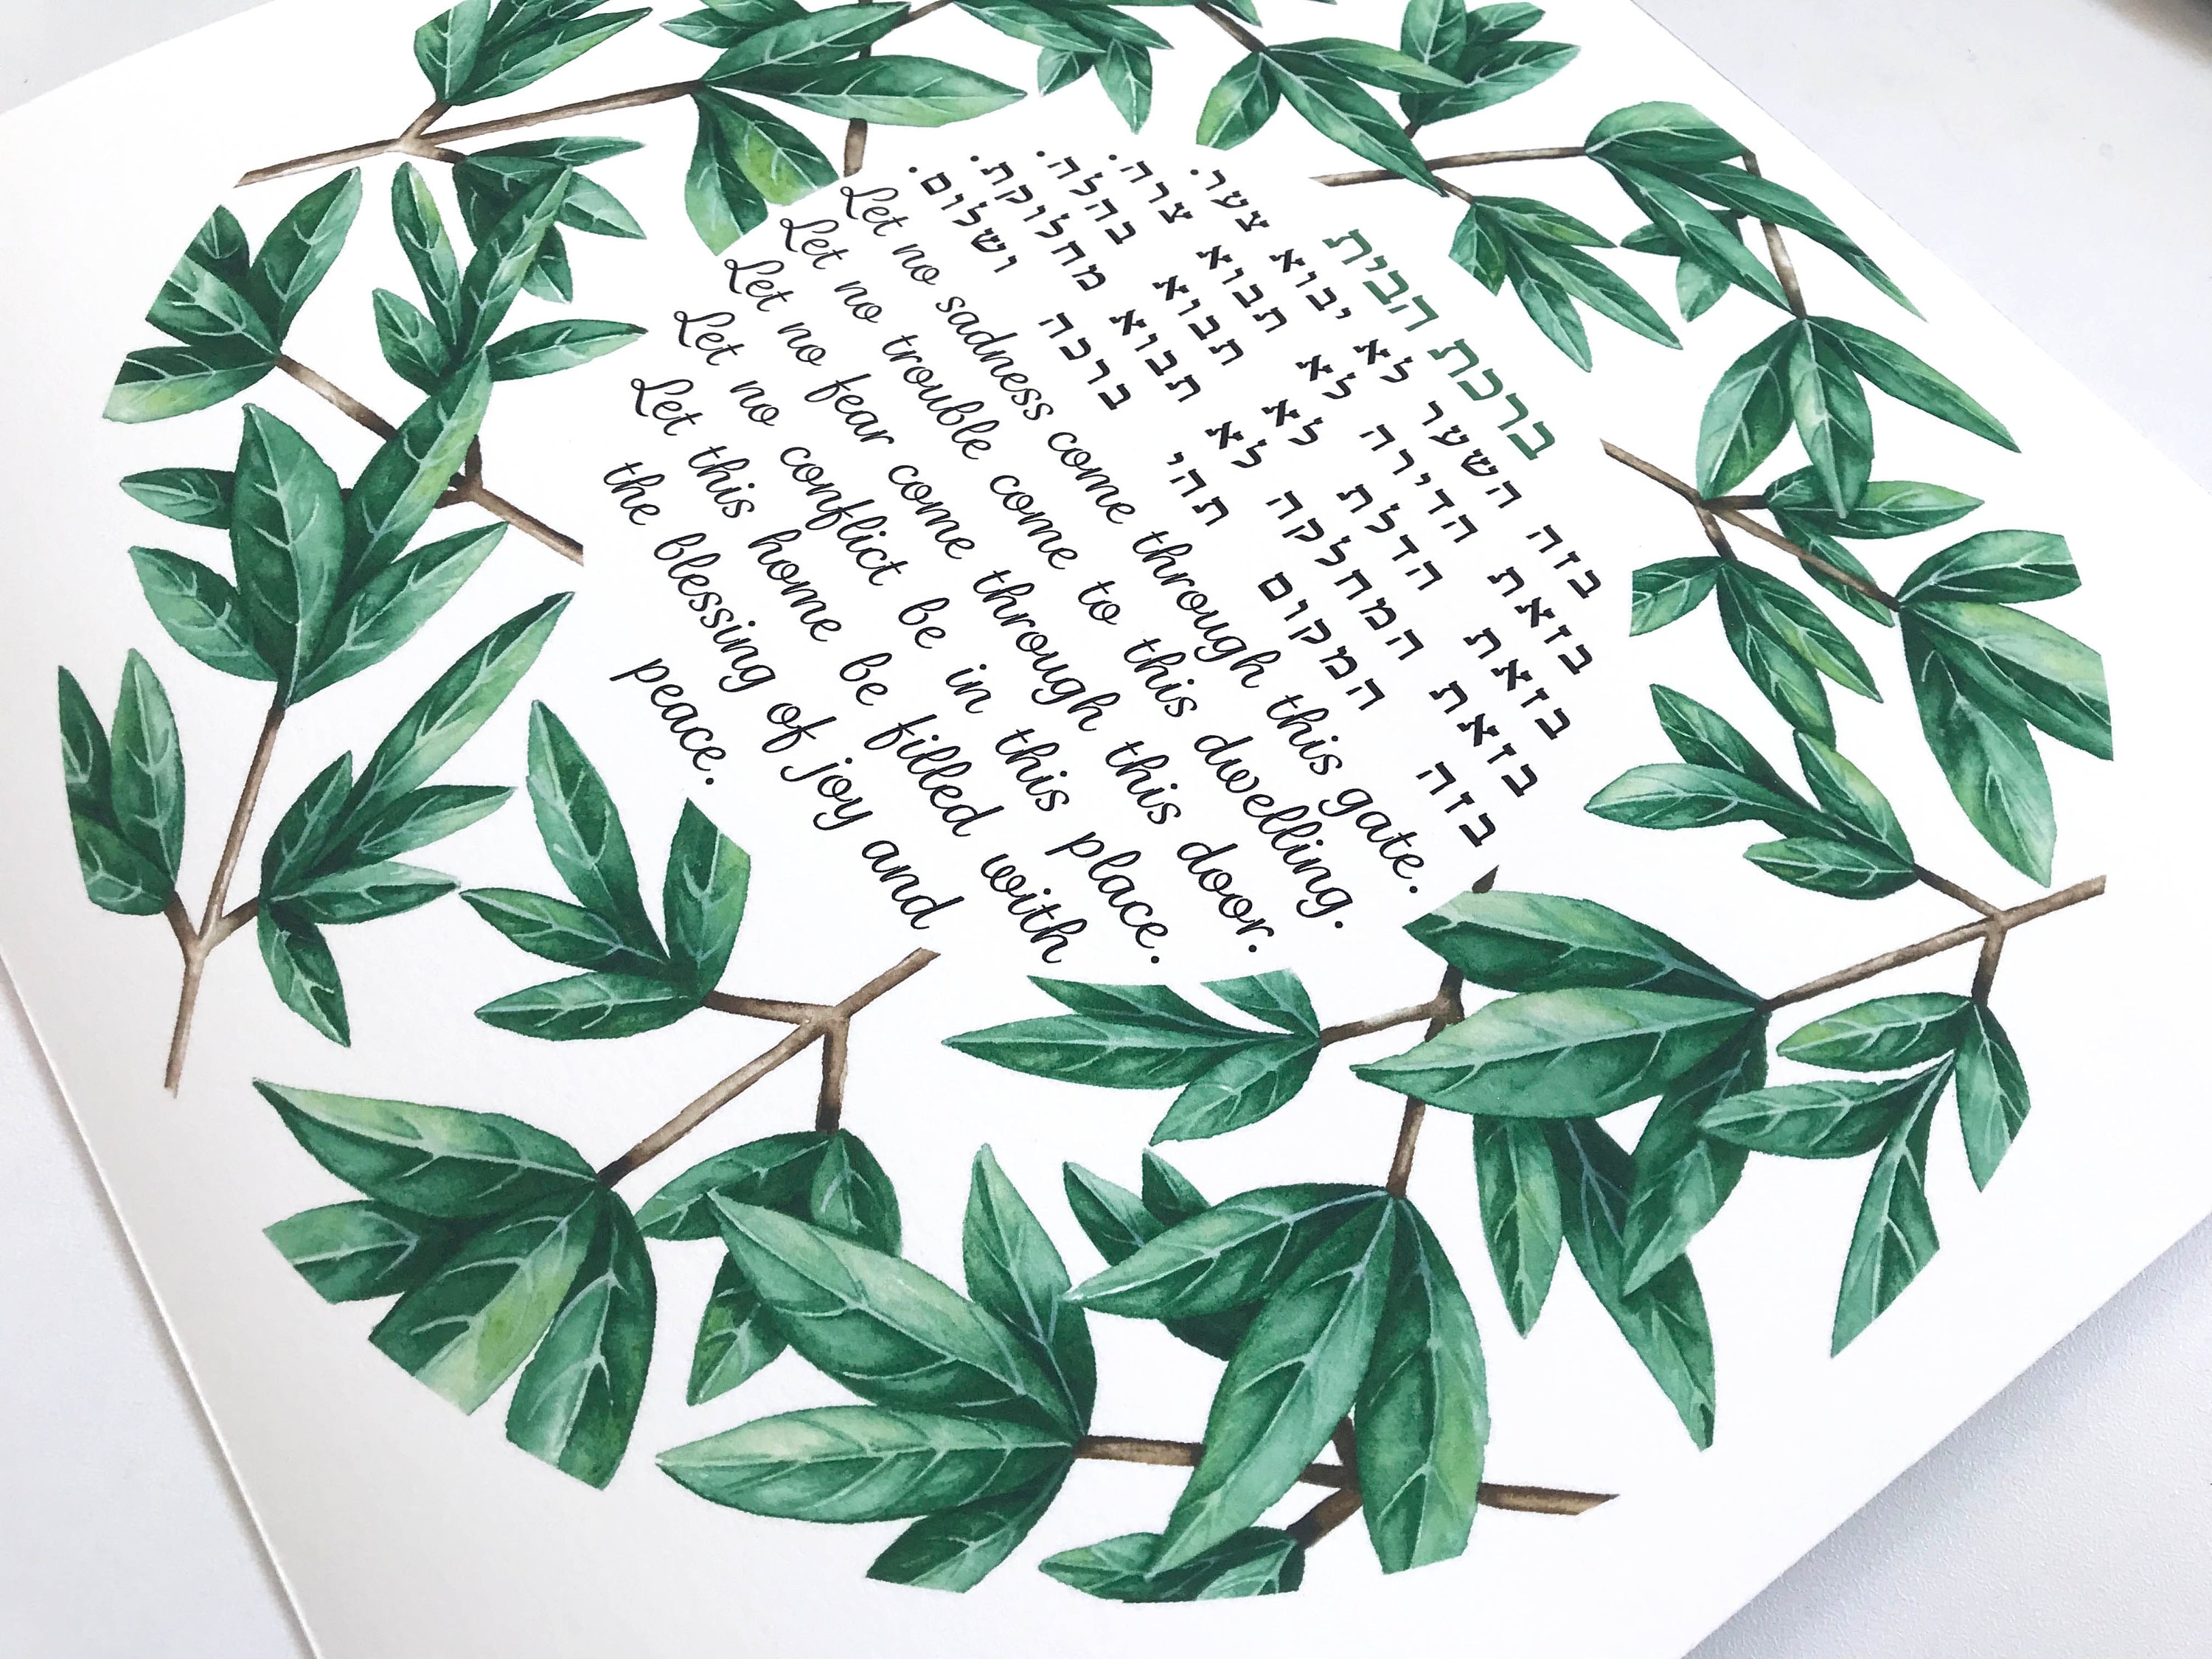 ברכת הבית
בזה השער לא יבוא צער.
בזאת הדירה לא תבוא צרה.
בזאת הדלת לא תבוא בהלה.
בזאת המחלקה לא תבוא מחלוקת.
בזה המקום תהי ברכה ושלום.
Let no sadness come through this gate.
Let no trouble come to this dwelling.
Let no fear come through this door.
Let no conflict be in this place.
Let this home be filled with
the blessing of joy and
peace.